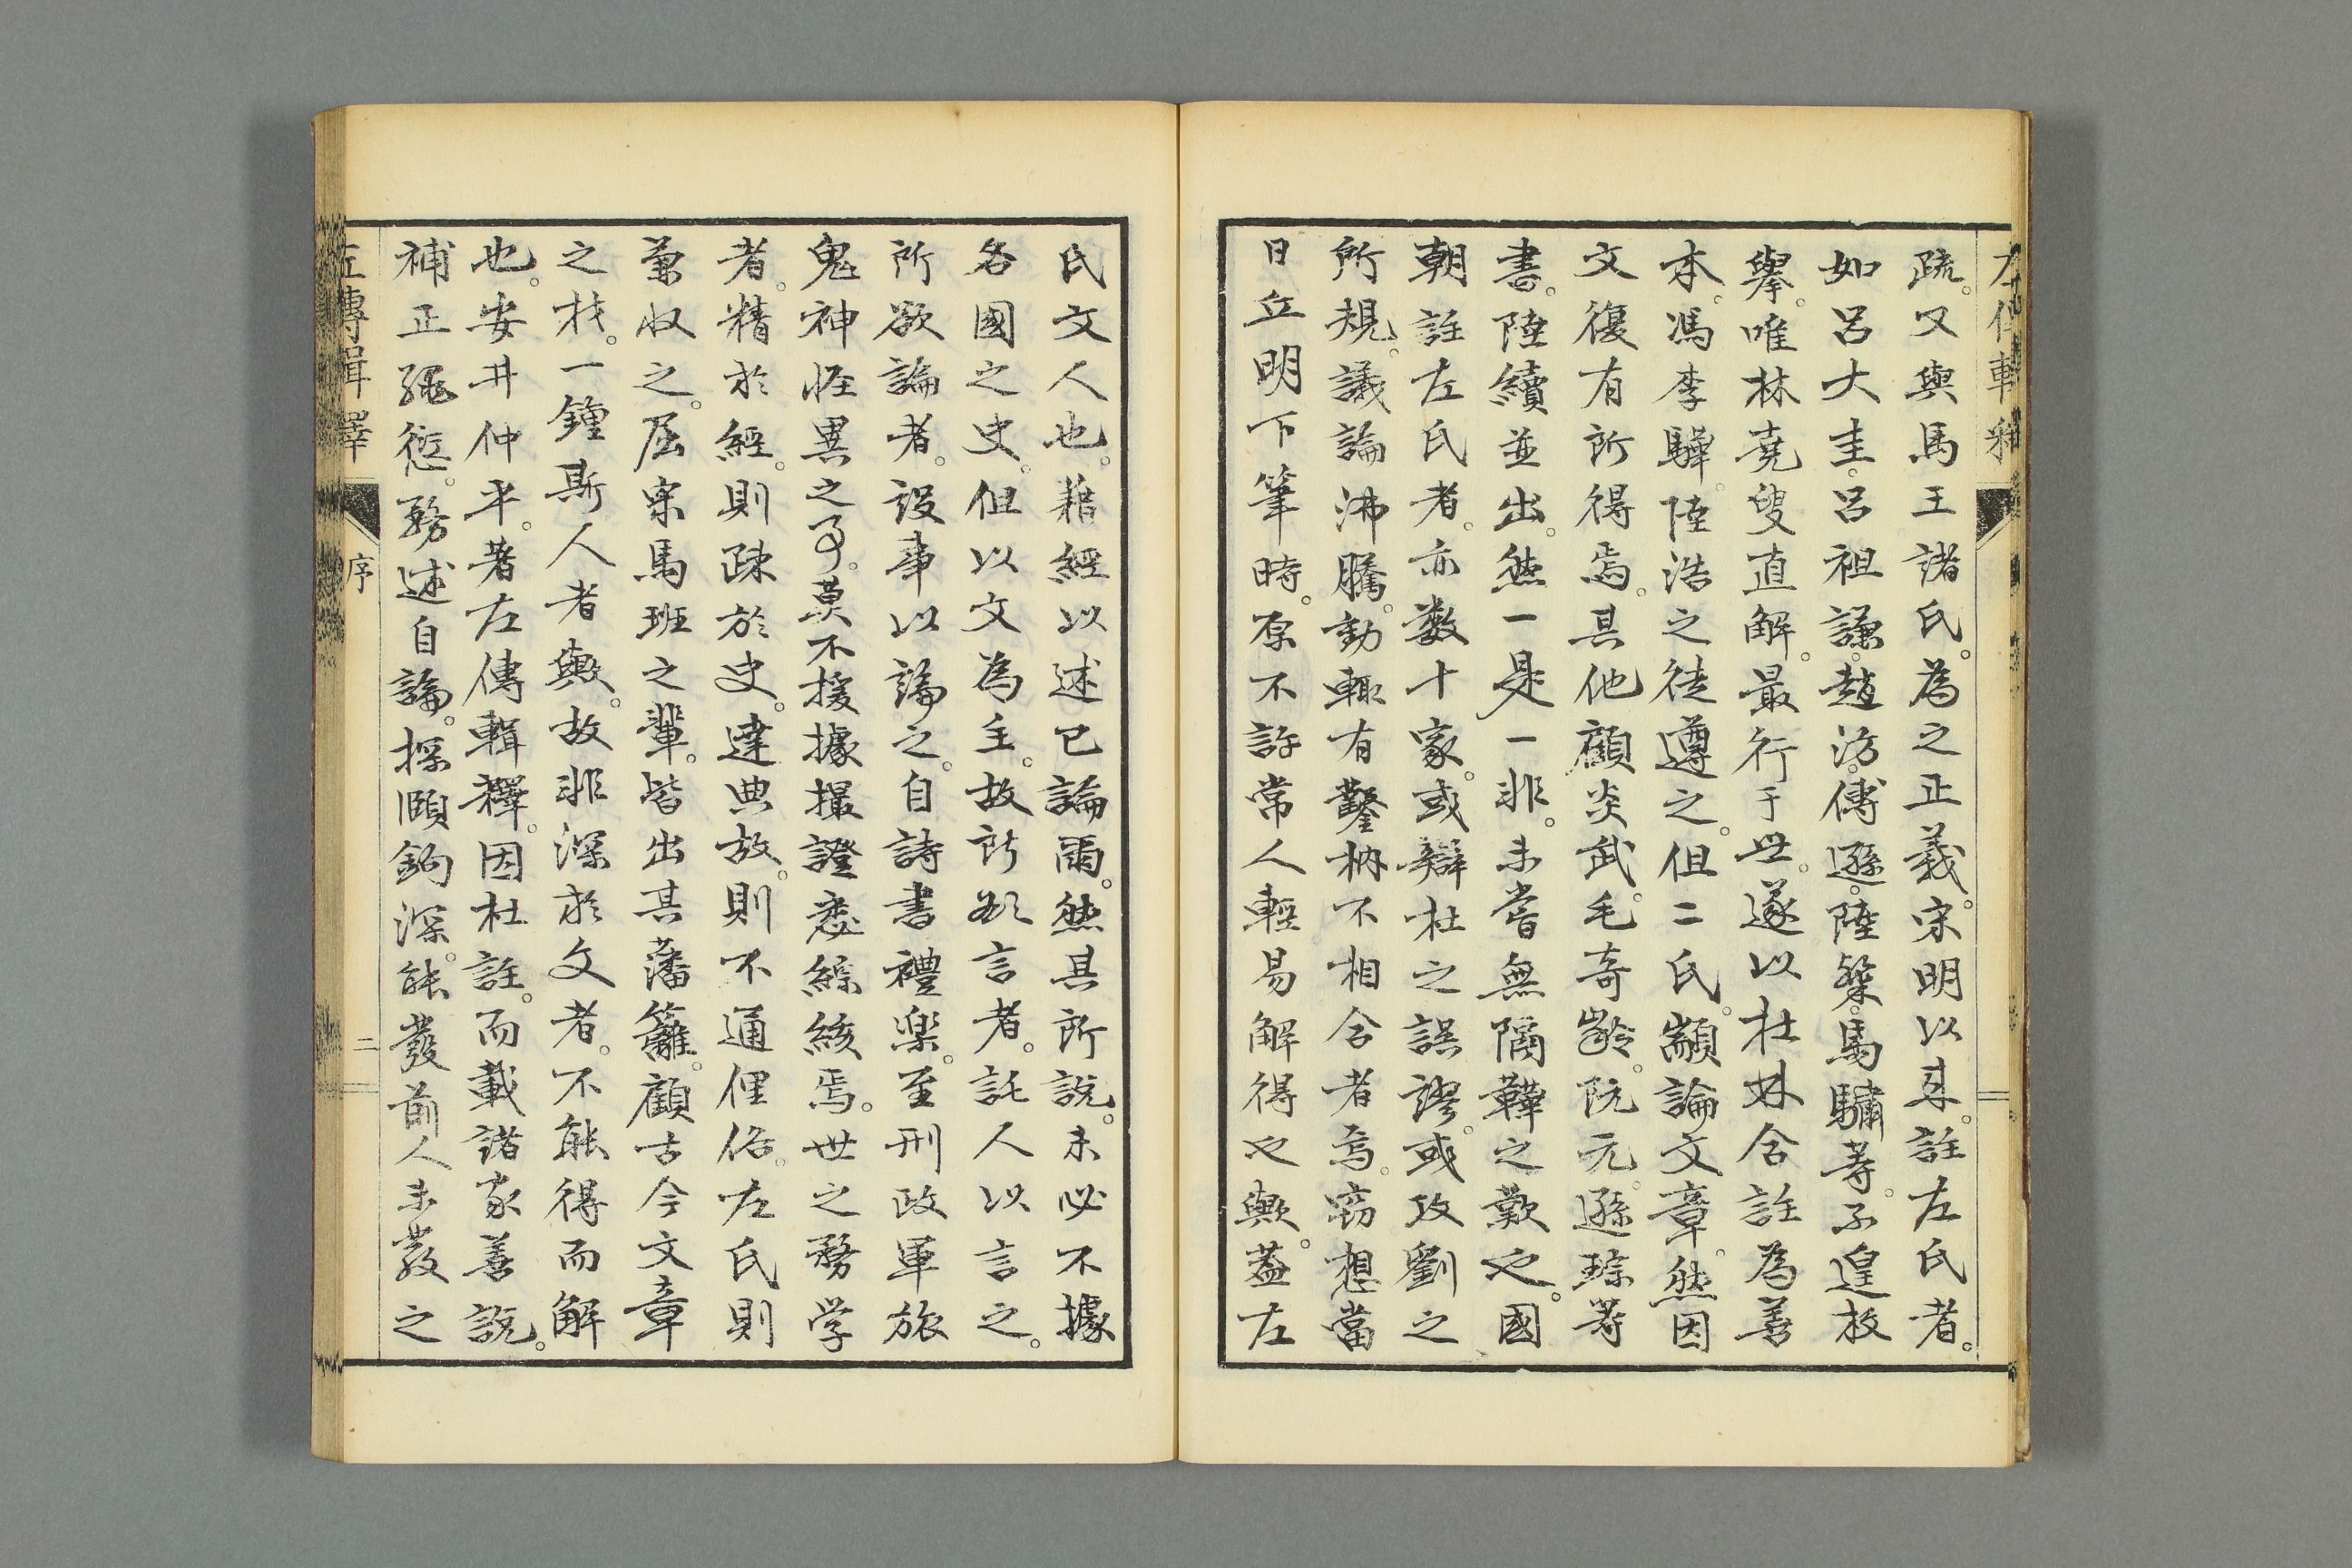 疏。又與馬王諸氏。為之正義。宋明以来。註左氏者。
如呂大圭。呂祖謙。趙汸。傅遜。陸粲。馬驌等。不遑枚
擧。唯林堯叟直解。最行于世。遂以杜林合註為善
本。馮李驊。陸浩之徒遵之。但二氏。顓論文章。然因
文復有所得焉。其他顧炎武。毛奇齡。阮元。遜琮等
書。陸續並出。然一是一非。未嘗無隔鞾之歎也。國
朝註左氏者。亦數十家。或辯杜之誤謬。或攻劉之
所規。議論沸騰。動輙有鑿枘不相合者焉。竊想當
日丘明下筆時。原不許常人輕易解得也歟。蓋左
氏文人也。藉經以述已論爾。然其所説。未必不據
各國之史。但以文為主。故所欲言者。託人以言之。
所欲論者。設事以論之。自詩書禮楽。至刑政軍旅
鬼神恠異之事。莫不援據撮證。悉綜絯焉。世之務学
者。精於經。則踈於史。達典故。則不通俚俗。左氏則
兼収之。屈宋馬班之輩。皆出其藩籬。顧古今文章
之材。一鍾斯人者歟。故非深於文者。不能得而解
也。安井仲平。著左傳輯釋。因杜註。而載諸家善説。
補正繩愆。務述自論。探頤鉤深。能發前人未發之
左傳輯釋
序
二